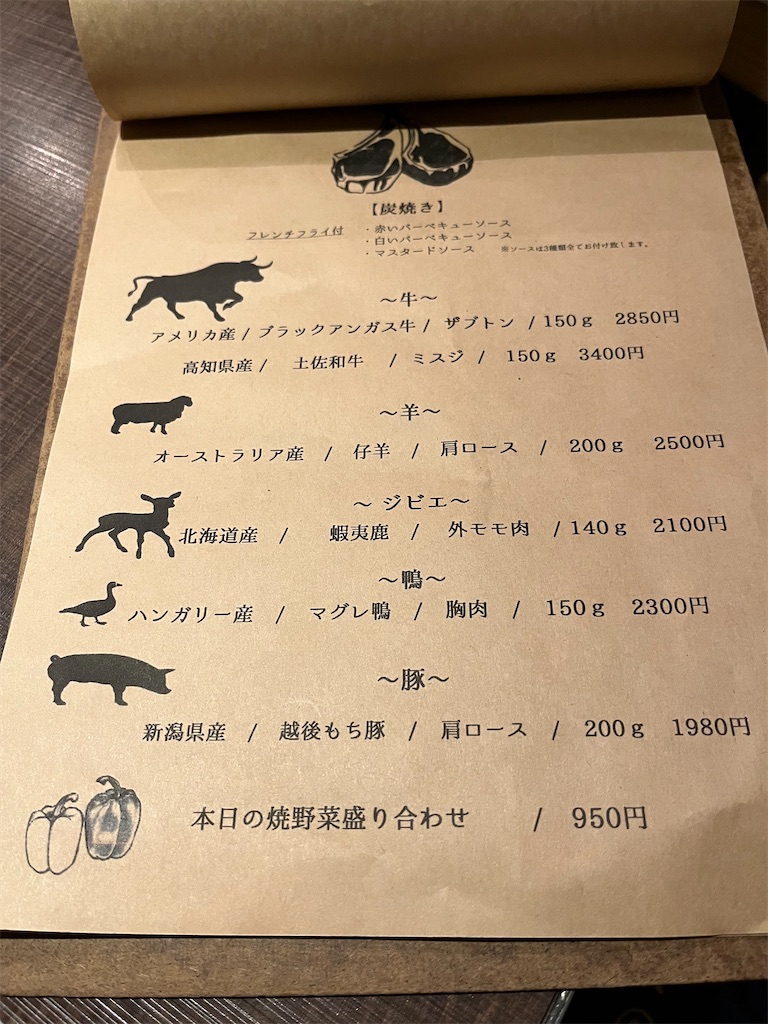 【炭焼き】
フレンチフライ付 ・赤いバーベキューソース
・白いバーベキューソース
・マスタードソース ※ソースは3種類全てお付け致します。
〜牛〜
アメリカ産 / ブラックアンガス牛 / ザブトン / 150g 2850円
高知県産 / 土佐和牛 / ミスジ / 150g 3400円
〜羊〜
オーストラリア産 / 仔羊 / 肩ロース / 200g 2500円
〜 ジビエ〜
北海道産 / 蝦夷鹿 / 外モモ肉 / 140g 2100円
〜鴨〜
ハンガリー産 / マグレ鴨 / 胸肉 / 150g 2300円
〜豚〜
新潟県産 / 越後もち豚 / 肩ロース / 200g 1980円
本日の焼野菜盛り合わせ / 950円